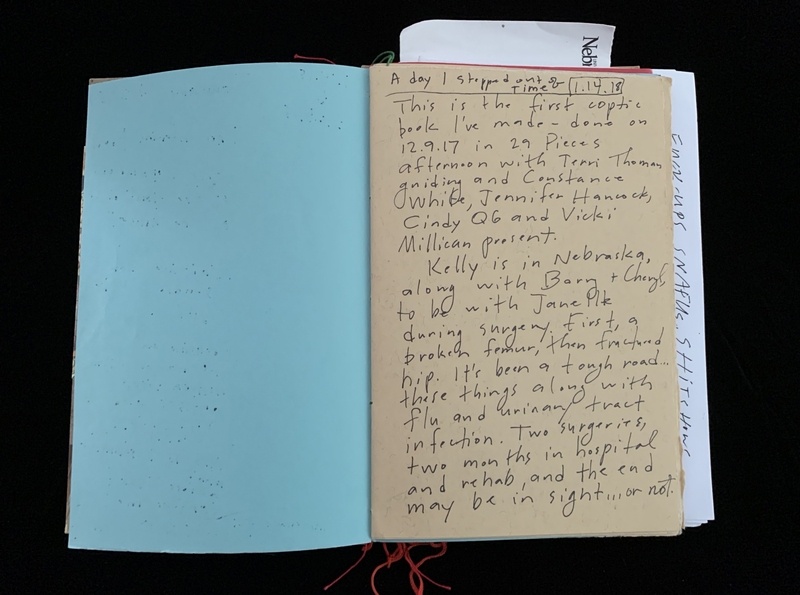 Neb
A day I stepped out of
Time 1.14.18
This is the first coptic
book I've made - done on
12.9.17 in 29 Pieces
afternoon with Terri Thoman
guiding and Constance
White, Jennifer Hancock,
Cindy Q6 and Vicki
Millican present.
Kelly is in Nebraska,
along with Barry + Cheryl,
to be with Jane
during surgery. First, a
broken femur, then fractured
hip. It's been a tough road...
these things along with
flu and urinary tract
infection. Two surgeries,
two months in hospital
and rehab, and the end
may be in sight... or not.
SNAFUs.